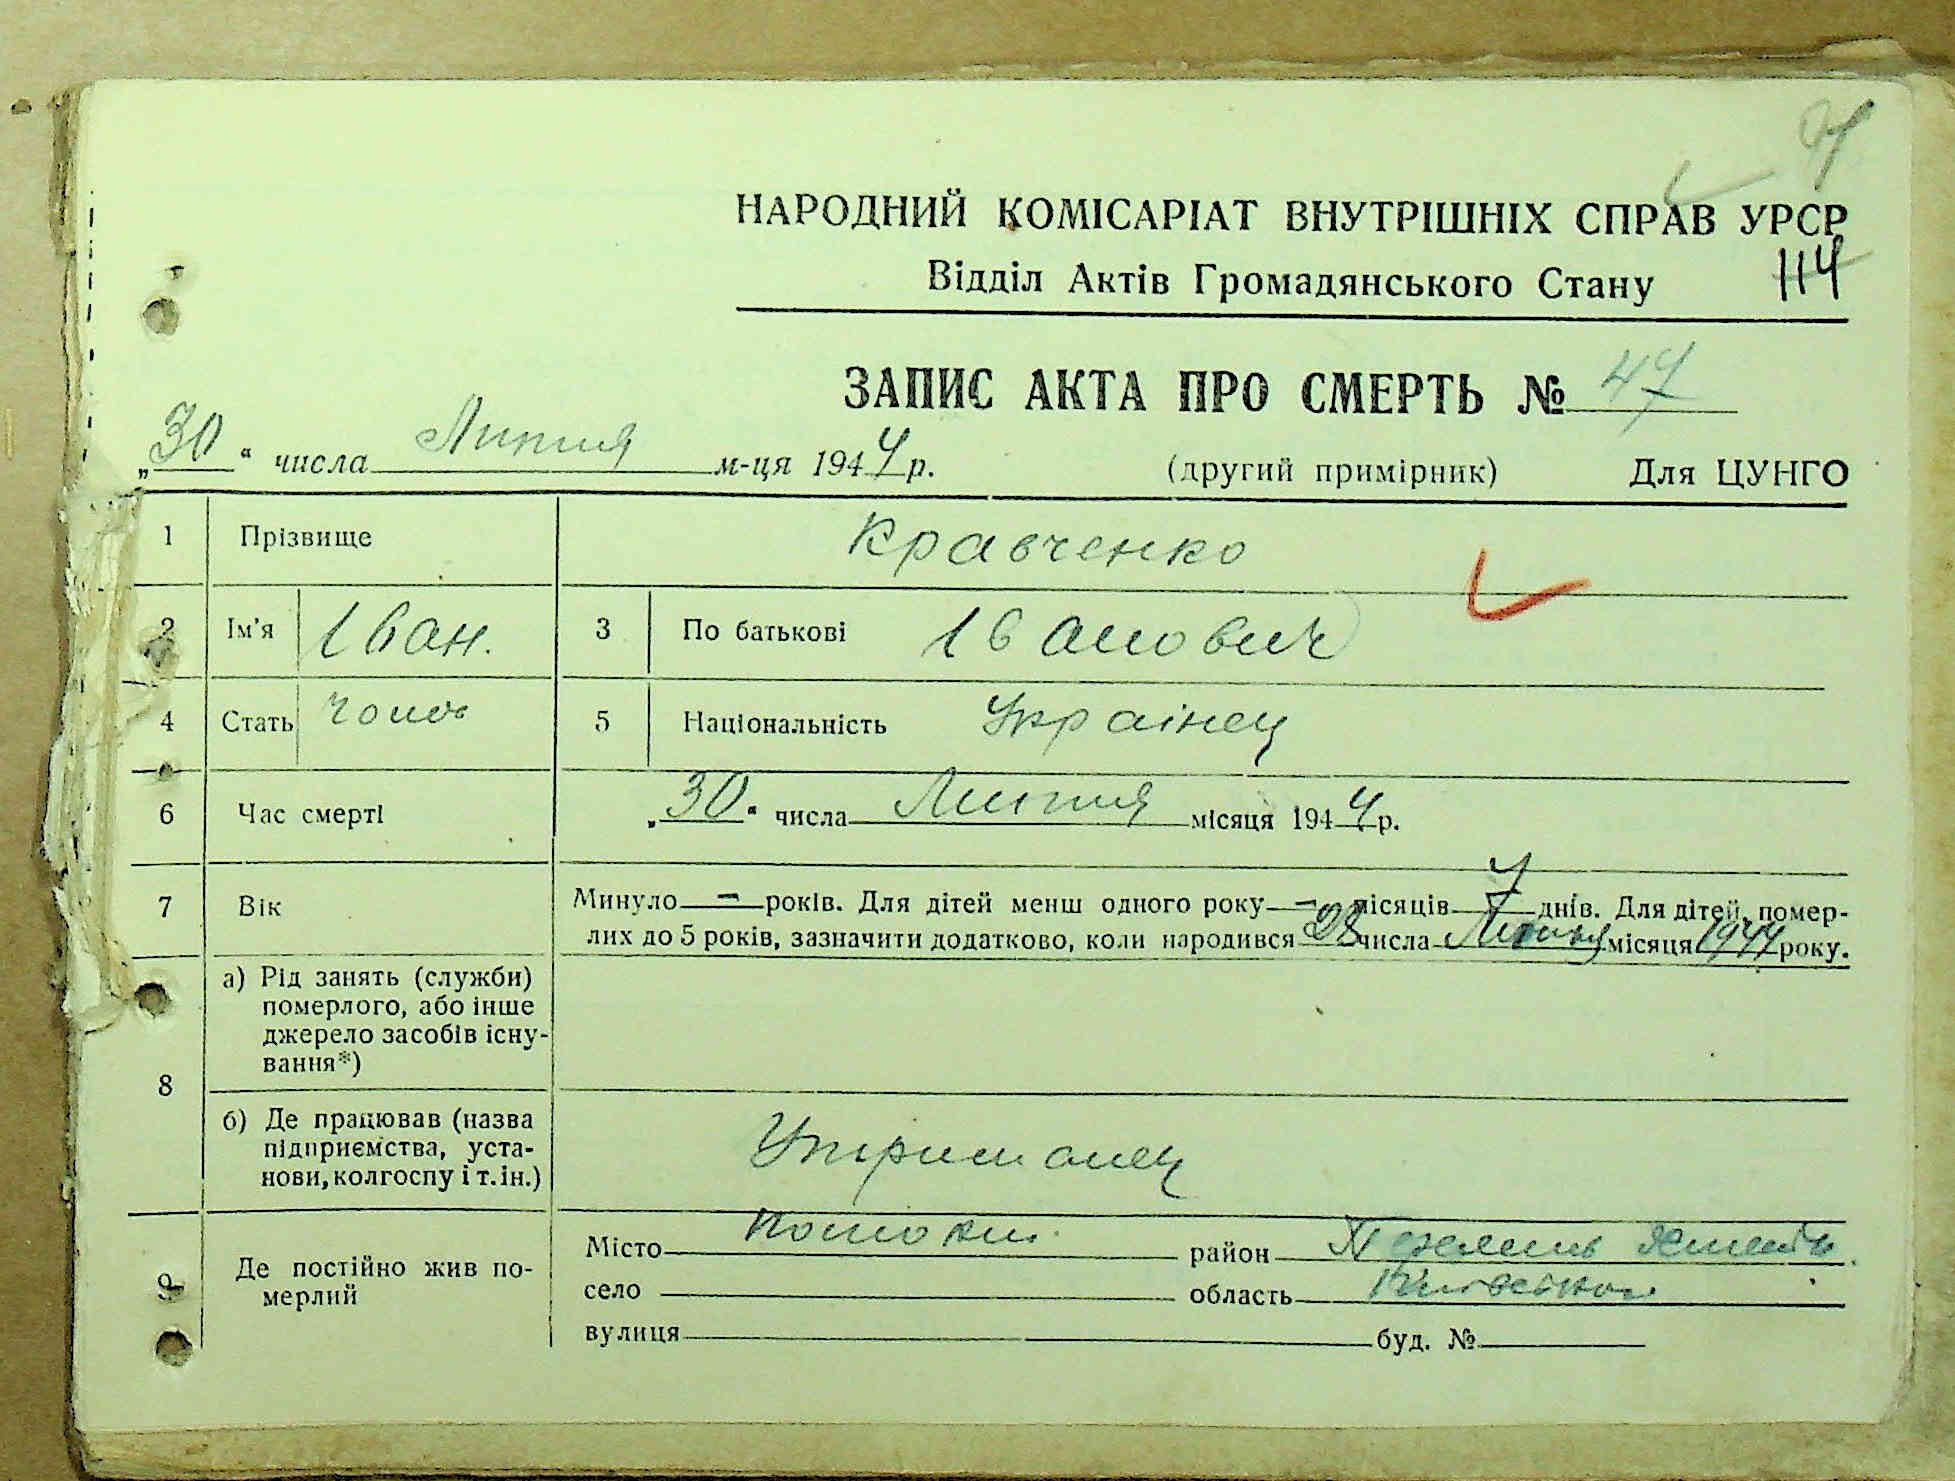 НАРОДНИЙ КОМІСАРІАТ ВНУТРІШНІХ СПРАВ УРСР
Відділ Актів Громадянського Стану 114
ЗАПИС АКТА ПРО СМЕРТЬ № 47
„30“ числа Липня м-ця 1944 р. (другий примірник) Для ЦУНГО
1 Прізвище Кравченко
2 Ім'я Іван. 3 По батькові Іванович
4 Стать чолов 5 Національність Українец
6 Час смерті „30“ числа Липня місяця 1944 р.
7 Вік Минуло — років. Для дітей менш одного року — місяців 7 днів. Для дітей, помер-
лих до 5 років, зазначити додатково, коли народився 28 числа Липня місяця 1944 року.
8 а) Рід занять (служби)
померлого, або інше
джерело засобів існу-
вання*)
б) Де працював (назва
підприємства, уста-
нови, колгоспу і т. ін.) Утриманец
9 Де постійно жив по-
мерлий
Місто район
село область Київської
вулиця буд. №